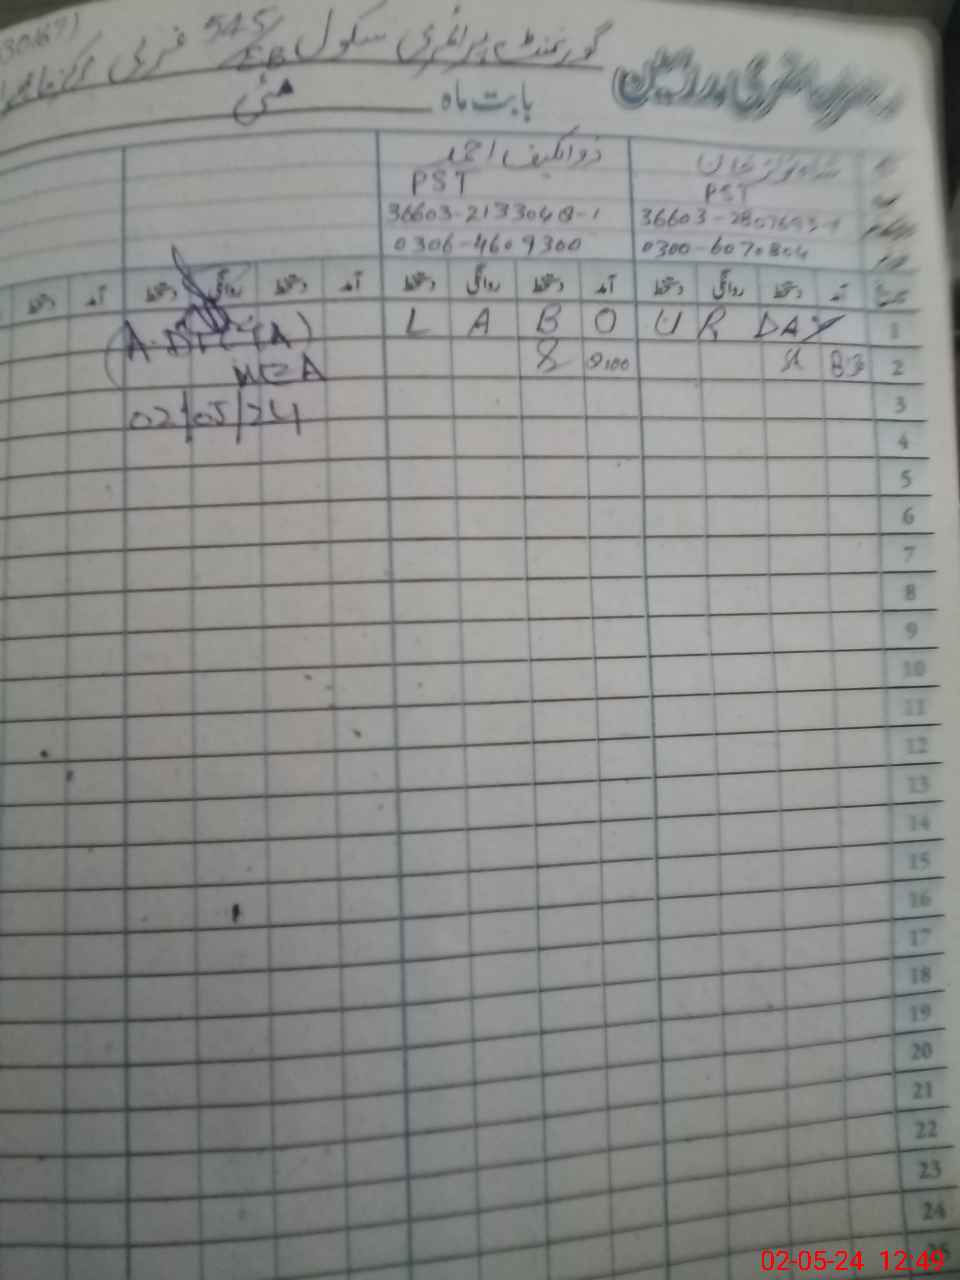 گورنمنٹ پرائمری سکول 545/EB غربی مرکز
رجسٹر حاضری مدرسین
بابت ماہ مئی
ذوالکیف احمد
PST PST
36603-2133048-1
0306-4609300 0300-6070804
آمد دستخط روانگی دستخط آمد دستخط روانگی دستخط آمد دستخط روانگی دستخط آمد دستخط
1 LABOUR DAY
2
MEA
02/05/24
3
4
5
6
7
8
9
10
11
12
13
14
15
16
17
18
19
20
21
22
23
24
25
02-05-24 12:49